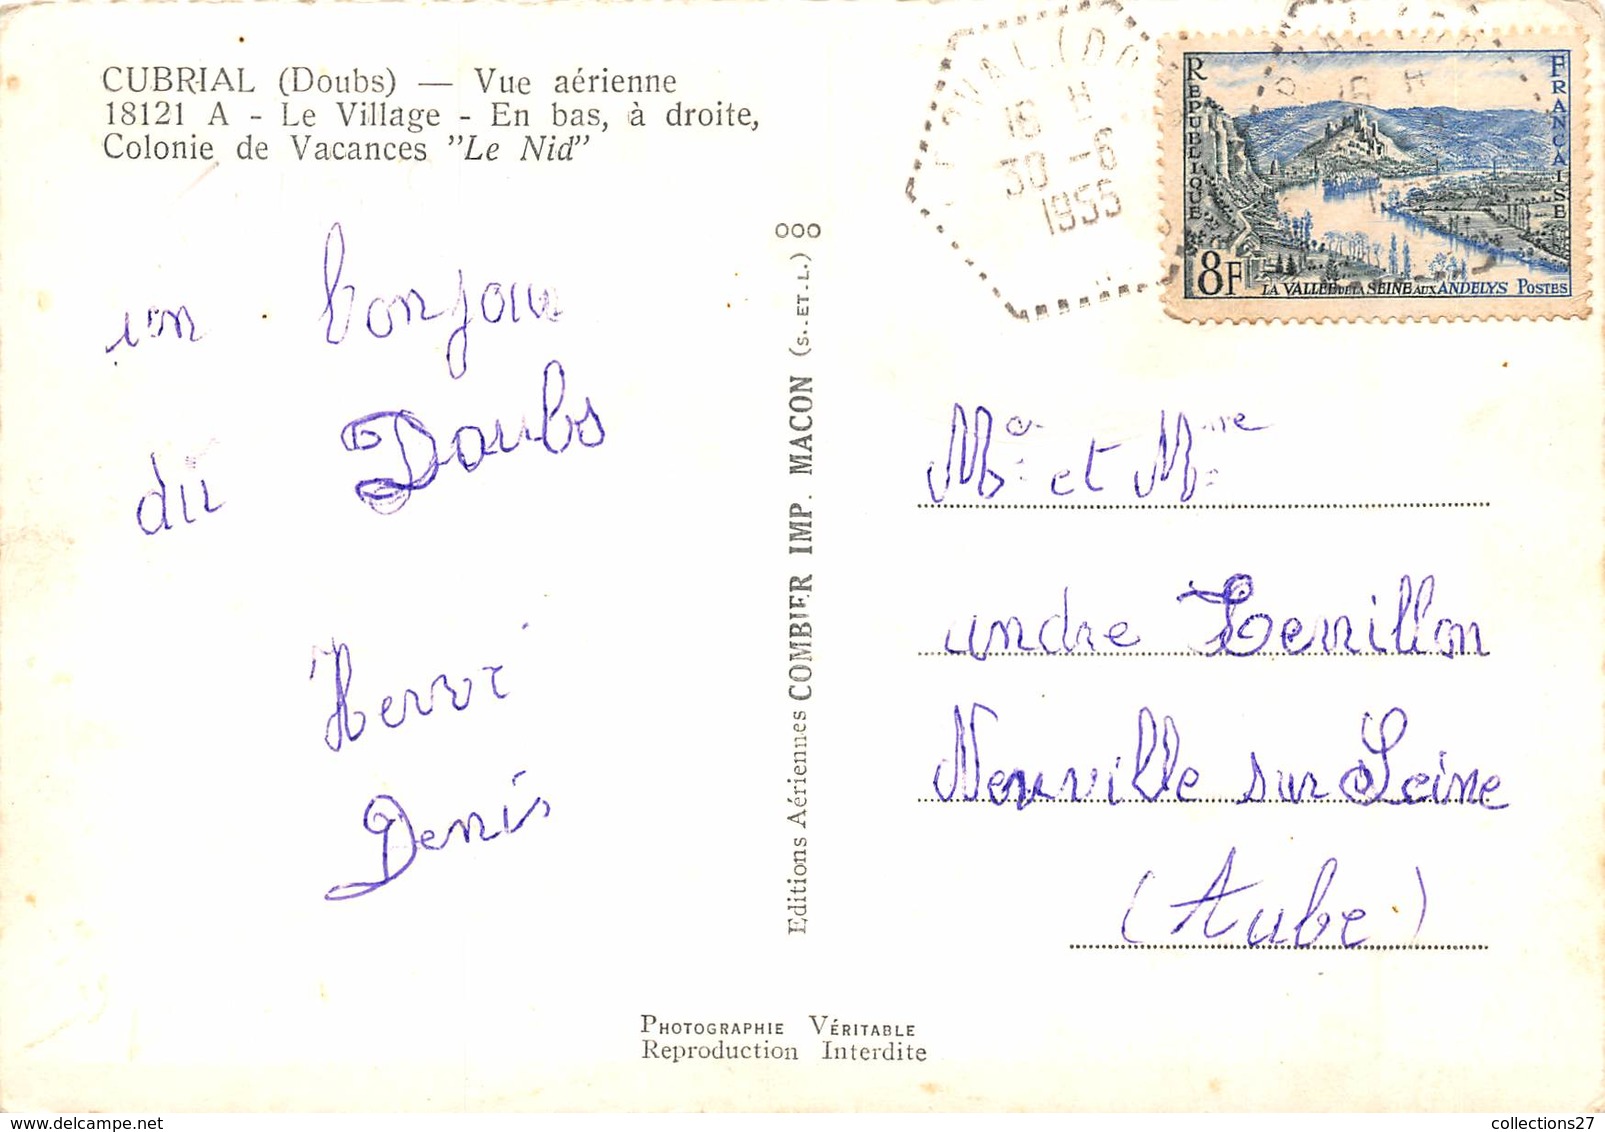 CUBRIAL (Doubs) — Vue aérienne
18121 A - Le Village - En bas, à droite,
Colonie de Vacances "Le Nid"
un bonjour
du Doubs
Hervé
Denis
Editions Aériennes COMBIER IMP. MACON (S. ET. L.)
CUBRIAL (DOUBS)
16 H
30 -6
1955
REPUBLIQUE
FRANCAISE
8F
LA VALLEE DE LA SEINE AUX ANDELYS POSTES
Mr et Mme
andre Terrillon
Neuville sur Seine
(Aube)
PHOTOGRAPHIE VÉRITABLE
Reproduction Interdite
collections27